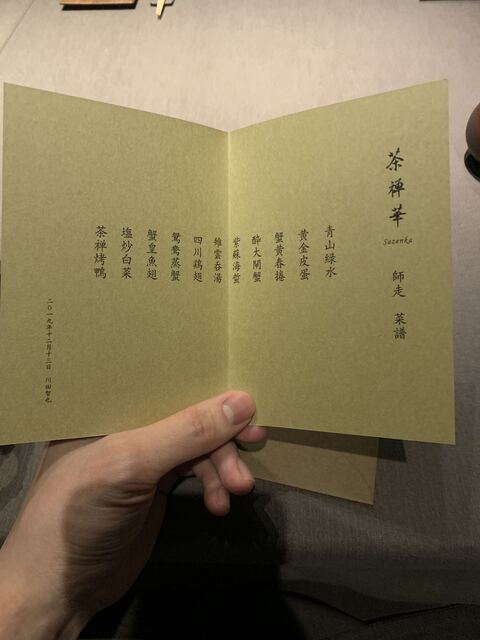 茶禅華
Sazenka
師走 菜譜
青山緑水
黄金皮蛋
蟹黄春捲
酔大閘蟹
紫蘇海蜇
雉雲吞湯
四川鶏翅
鴛鴦蒸蟹
蟹皇魚翅
塩炒白菜
茶禅烤鴨
二〇一九年十二月十三日 川田智也